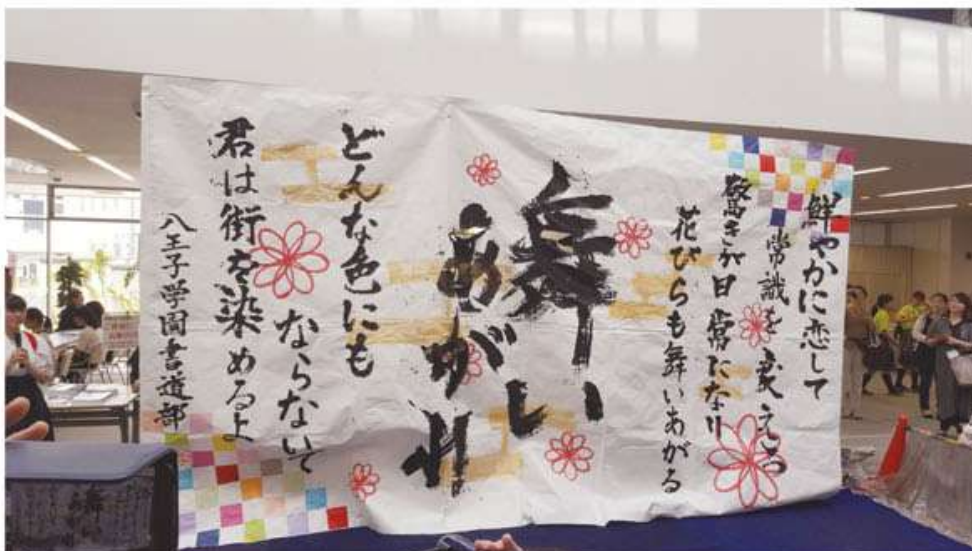 鮮やかに恋して
常識を変えろ
驚きが日常になり
花びらも舞いあがる
舞い
あがれ
どんな色にも
ならないで
君は街を染めるよ
八王子学園書道部